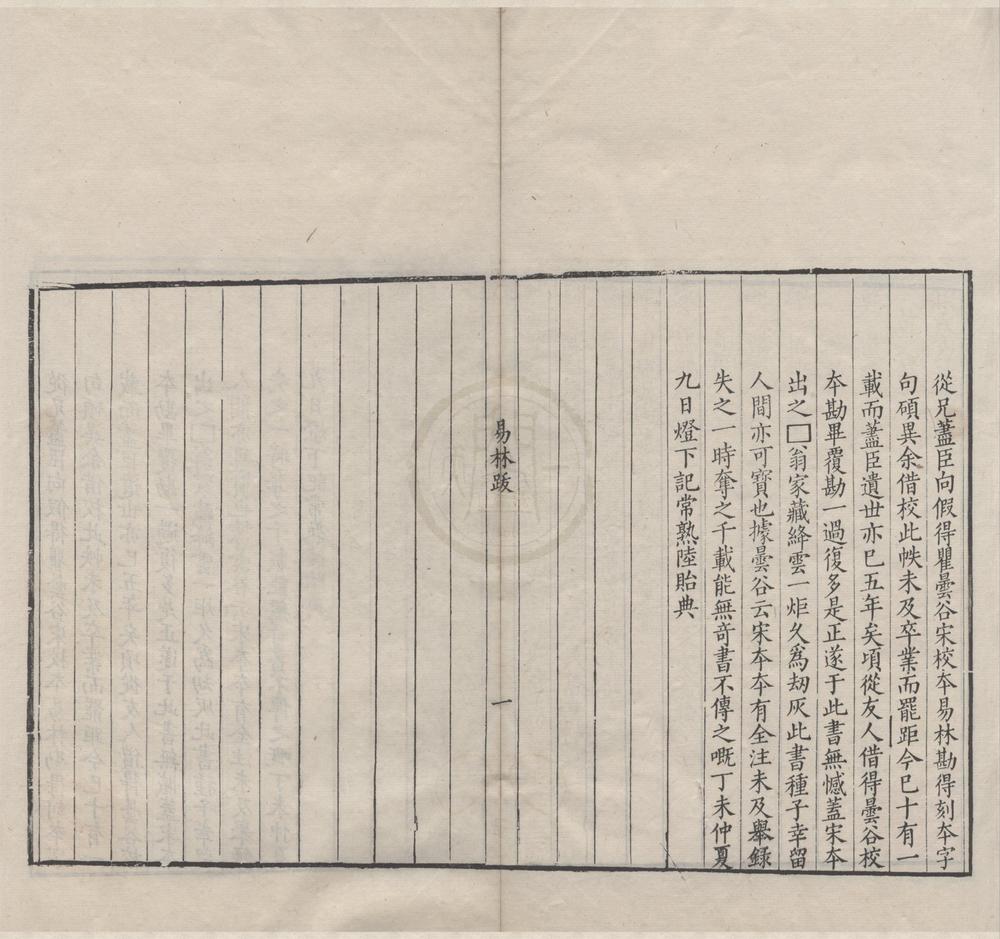 從兄藎臣向假得瞿曇谷宋校本易林勘得刻本字
句碩異余借校此帙未及卒業而罷距今巳十有一
載而藎臣遺丗亦巳五年矣頃從友人借得曇谷校
本勘畢覆勘一過復多是正遂于此書無憾蓋宋本
出之□翁家藏絳雲一炬久爲刼灰此書種子幸留
人間亦可寶也據曇谷云宋本本有全注未及舉録
失之一時奪之千載能無奇書不傳之嘅丁未仲夏
九日燈下記常熟陸貽典
易林跋
一